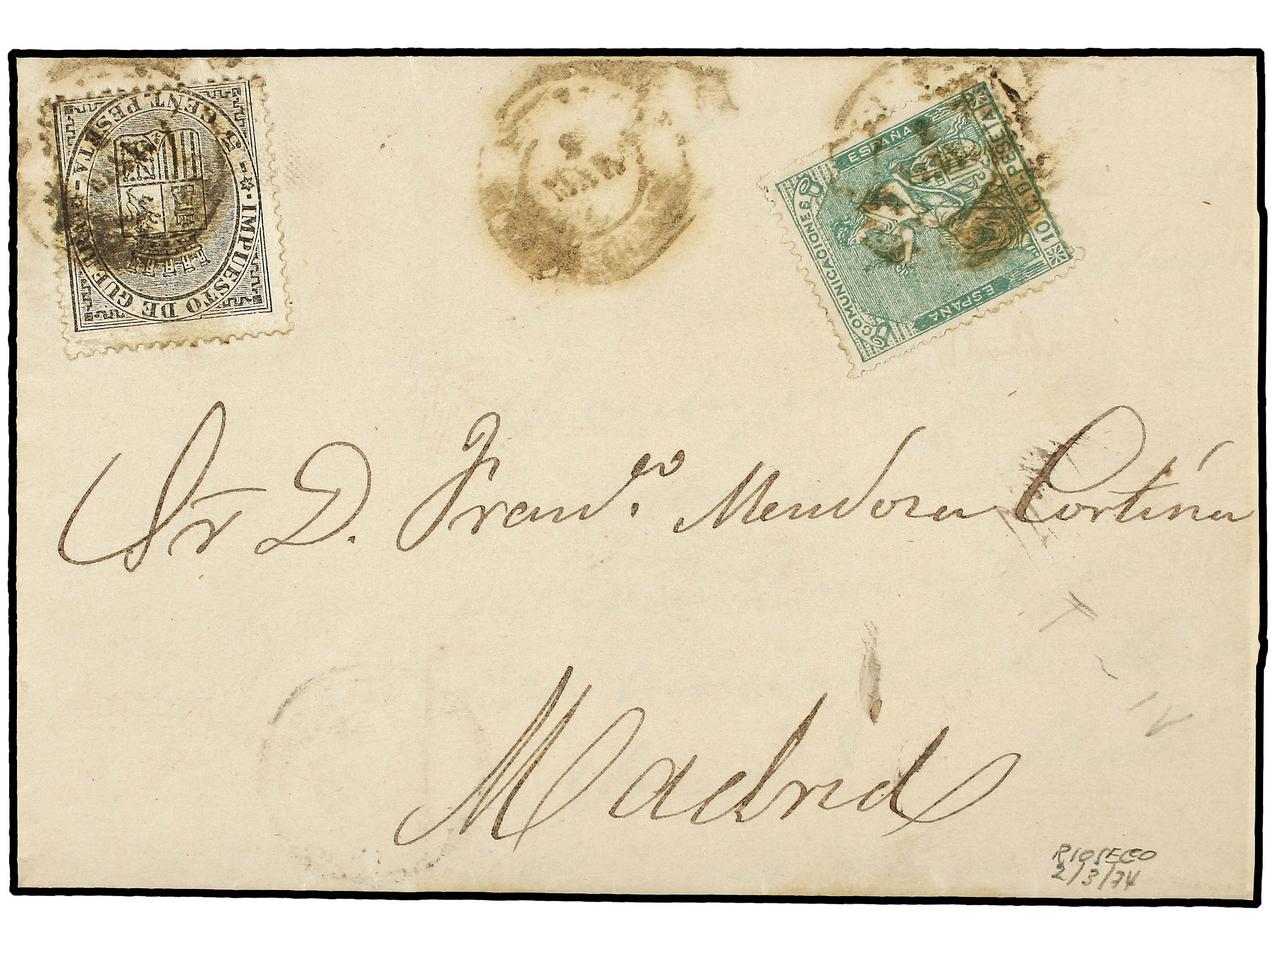 5 CENT. PESETA
IMPUESTO DE GUERRA
MAR
COMUNICACIONES
ESPAÑA
ESPAÑA
10 PESETA
Sr D. Franc.co Mendoza Cortina
Madrid
RIOSECO
2/3/74